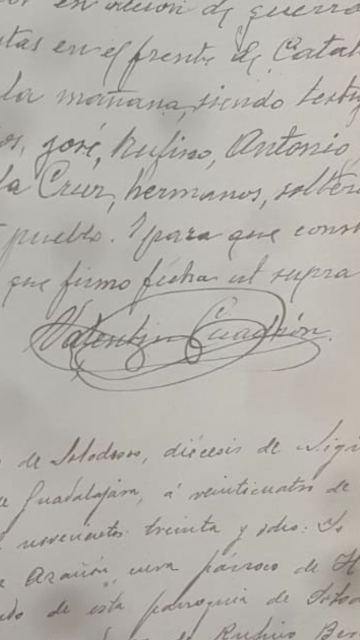 en acción de guerra
tas en el frente de Catal
la mañana, siendo test
os, José, Rufino, Antonio
la Cruz, hermanos, solter
pueblo. Y para que cons
que firmo fecha ut supra
Valentin Cuadrón.
de diócesis de Sigü
Guadalajara, á veinticuatro de
novecientos treinta y ocho: Yo
cura párroco de
de esta parroquia de
de Rufino